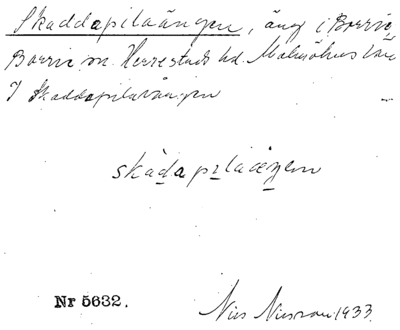 Skaddapilaängen, äng i Borrie,
Borrie sn. Herrestads hd. Malmöhus län
I Skaddapilaängen
skàdapilaäŋen
Nr 5632.
Nils 1933.